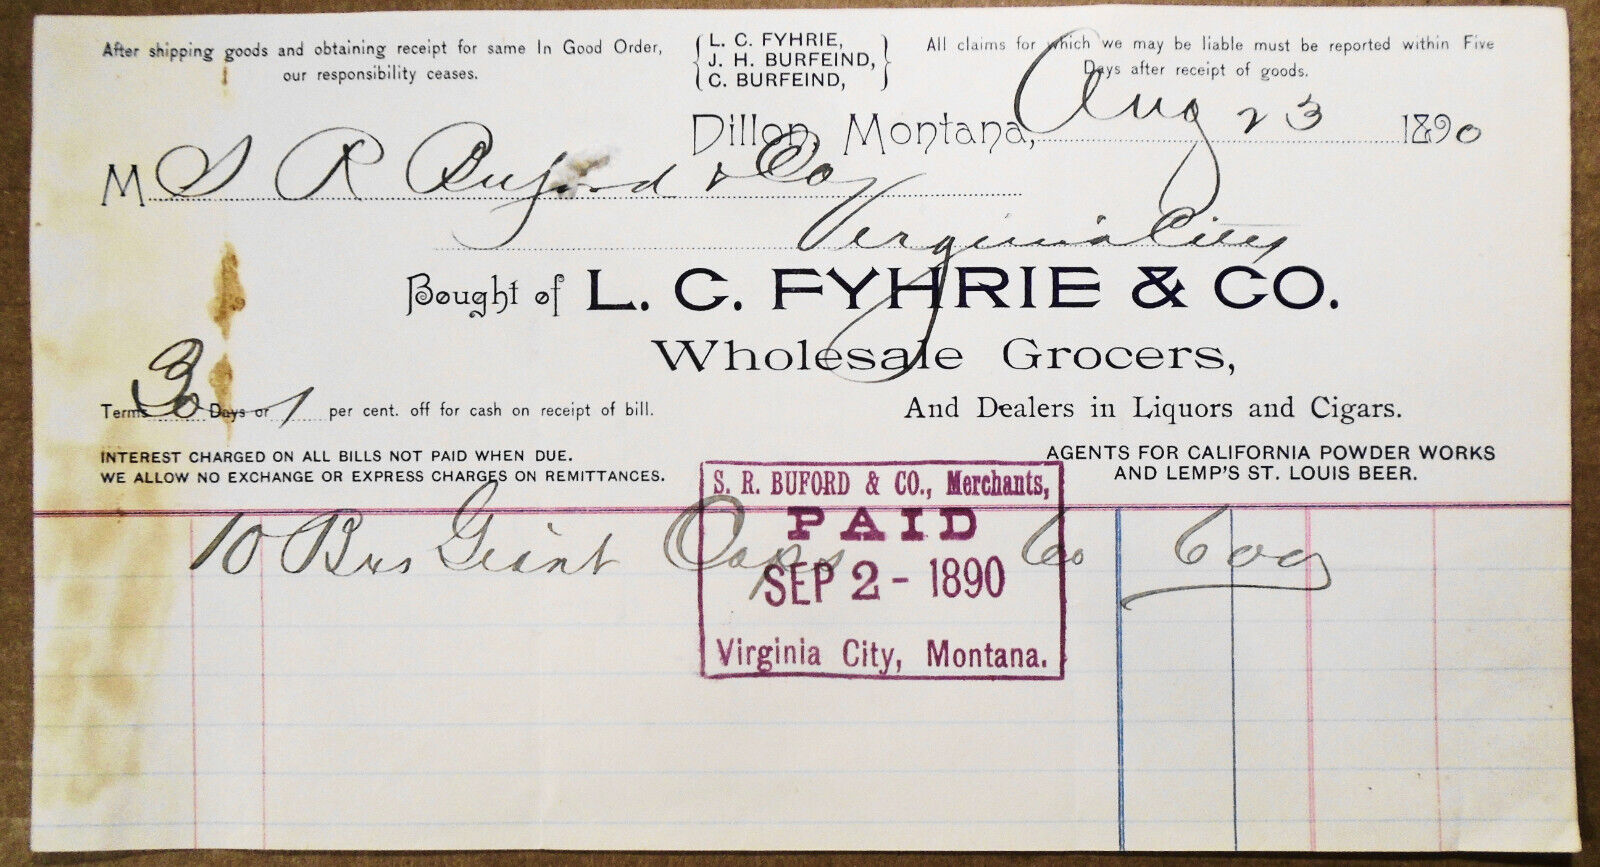 After shipping goods and obtaining receipt for same In Good Order,
our responsibility ceases.
L. C. FYHRIE,
J. H. BURFEIND,
C. BURFEIND,
All claims for which we may be liable must be reported within Five
Days after receipt of goods.
Dillon, Montana, Aug 23 1890
M S R Buford & Co
Virginia City
Bought of L. C. FYHRIE & CO.
Wholesale Grocers,
And Dealers in Liquors and Cigars.
Terms 30 Days or 1 per cent. off for cash on receipt of bill.
INTEREST CHARGED ON ALL BILLS NOT PAID WHEN DUE.
WE ALLOW NO EXCHANGE OR EXPRESS CHARGES ON REMITTANCES.
AGENTS FOR CALIFORNIA POWDER WORKS
AND LEMP'S ST. LOUIS BEER.
10 Bxs Giant Caps 60 600
S. R. BUFORD & CO., Merchants,
PAID
SEP 2 - 1890
Virginia City, Montana.